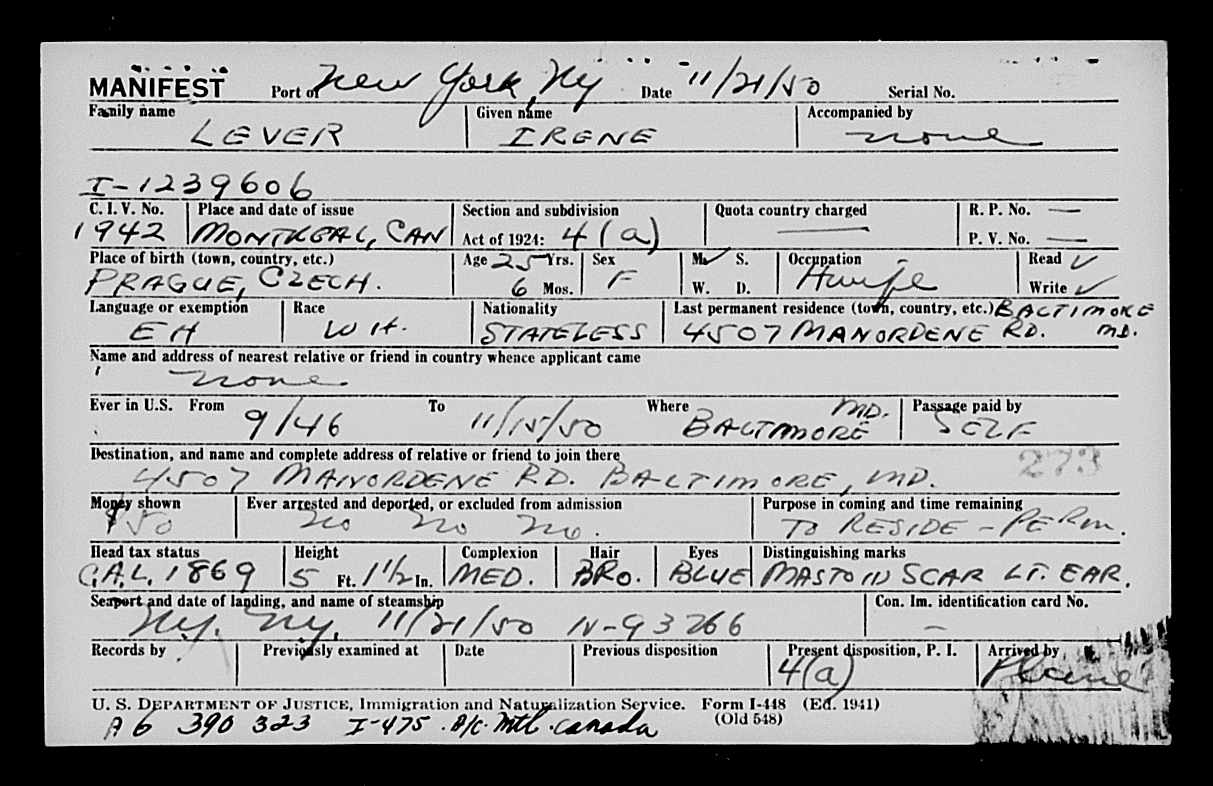 MANIFEST Port of New York, Ny Date 11/21/50 Serial No.
Family name Given name Accompanied by
LEVER IRENE none
I-1239606
C. I. V. No. Place and date of issue Section and subdivision Quota country charged R. P. No. —
1942 MONTREAL, CAN Act of 1924: 4(a) — P. V. No. —
Place of birth (town, country, etc.) Age 25 Yrs. Sex M. ✓ S. Occupation Read ✓
PRAGUE, CZECH. 6 Mos. F W. D. Hwife Write ✓
Language or exemption Race Nationality Last permanent residence (town, country, etc.) BALTIMORE
EH WH. STATELESS 4507 MANORDENE RD. MD.
Name and address of nearest relative or friend in country whence applicant came
none
Ever in U.S. From To Where MD. Passage paid by
9/46 11/15/50 BALTIMORE SELF
Destination, and name and complete address of relative or friend to join there
4507 MANORDENE RD. BALTIMORE, MD. 273
Money shown Ever arrested and deported, or excluded from admission Purpose in coming and time remaining
$50 No No No. TO RESIDE - PERM.
Head tax status Height Complexion Hair Eyes Distinguishing marks
C.A.L. 1869 5 Ft. 1 1/2 In. MED. BRO. BLUE MASTOID SCAR LT. EAR.
Seaport and date of landing, and name of steamship Con. Im. identification card No.
Ny. Ny. 11/21/50 N-93266 —
Records by Previously examined at Date Previous disposition Present disposition, P. I. Arrived by
4(a) Plane
U. S. DEPARTMENT OF JUSTICE, Immigration and Naturalization Service. Form I-448 (Ed. 1941)
(Old 548)
A6 390 323 I-475 A/c. Mtl. Canada